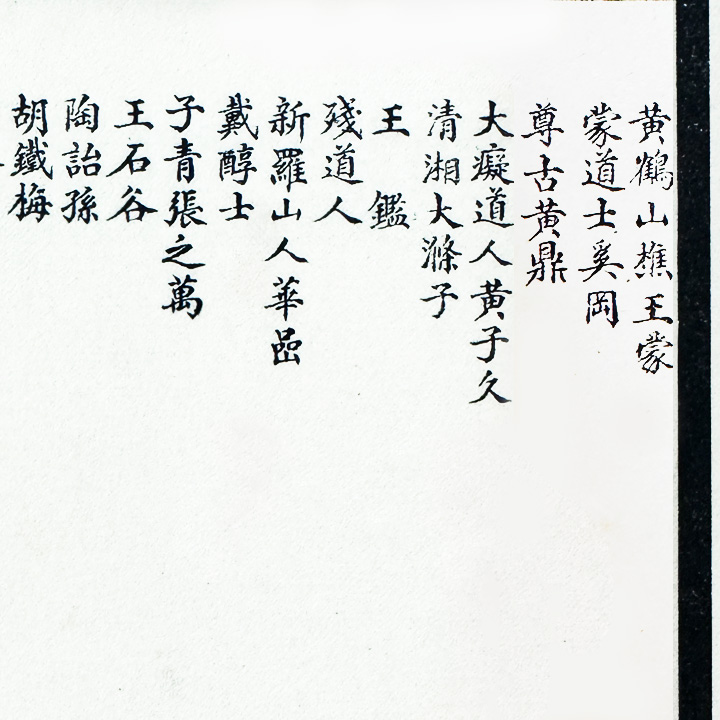 黃鶴山樵王蒙
蒙道士奚岡
尊古黃鼎
大癡道人黃子久
清湘大滌子
王鑑
殘道人
新羅山人華喦
戴醇士
子青張之萬
王石谷
陶詒孫
胡鐵梅